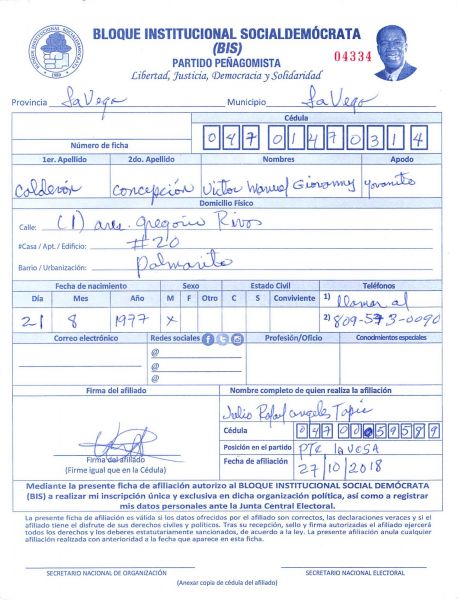 BLOQUE INSTITUCIONAL SOCIALDEMÓCRATA
(BIS)
PARTIDO PEÑAGOMISTA
04334
Libertad, Justicia, Democracia y Solidaridad
Provincia La Vega Municipio La Vega
Cédula
Número de ficha 04701470314
1er. Apellido 2do. Apellido Nombres Apodo
Calderón Concepción Victor Manuel Giovanny Yovanito
Domicilio Físico
Calle: (1) Gregorio Rivas
#Casa / Apt. / Edificio: #20
Barrio / Urbanización: Palmarito
Fecha de nacimiento Sexo Estado Civil Teléfonos
Día Mes Año M F Otro C S Conviviente 1) llamar al
21 8 1977 x 2) 809-573-0090
Correo electrónico Redes sociales Profesión/Oficio Conocimientos especiales
@
@
@
Firma del afiliado Nombre completo de quien realiza la afiliación
Julio Rafael Angeles Tapia
Cédula 04700059589
Posición en el partido PTE LA VEGA
Firma del afiliado
(Firme igual que en la Cédula)
Fecha de afiliación 27/10/2018
Mediante la presente ficha de afiliación autorizo al BLOQUE INSTITUCIONAL SOCIAL DEMÓCRATA
(BIS) a realizar mi inscripción única y exclusiva en dicha organización política, así como a registrar
mis datos personales ante la Junta Central Electoral.
La presente ficha de afiliación es válida si los datos ofrecidos por el afiliado son correctos, las declaraciones veraces y si el
afiliado tiene el disfrute de sus derechos civiles y políticos. Tras su recepción, sello y firma autorizadas el afiliado ejercerá
todos los derechos y los deberes estatutariamente sancionados, de acuerdo a la ley. La presente afiliación anula cualquier
afiliación realizada con anterioridad a la fecha que aparece en esta ficha.
SECRETARIO NACIONAL DE ORGANIZACIÓN SECRETARIO NACIONAL ELECTORAL
(Anexar copia de cédula del afiliado)